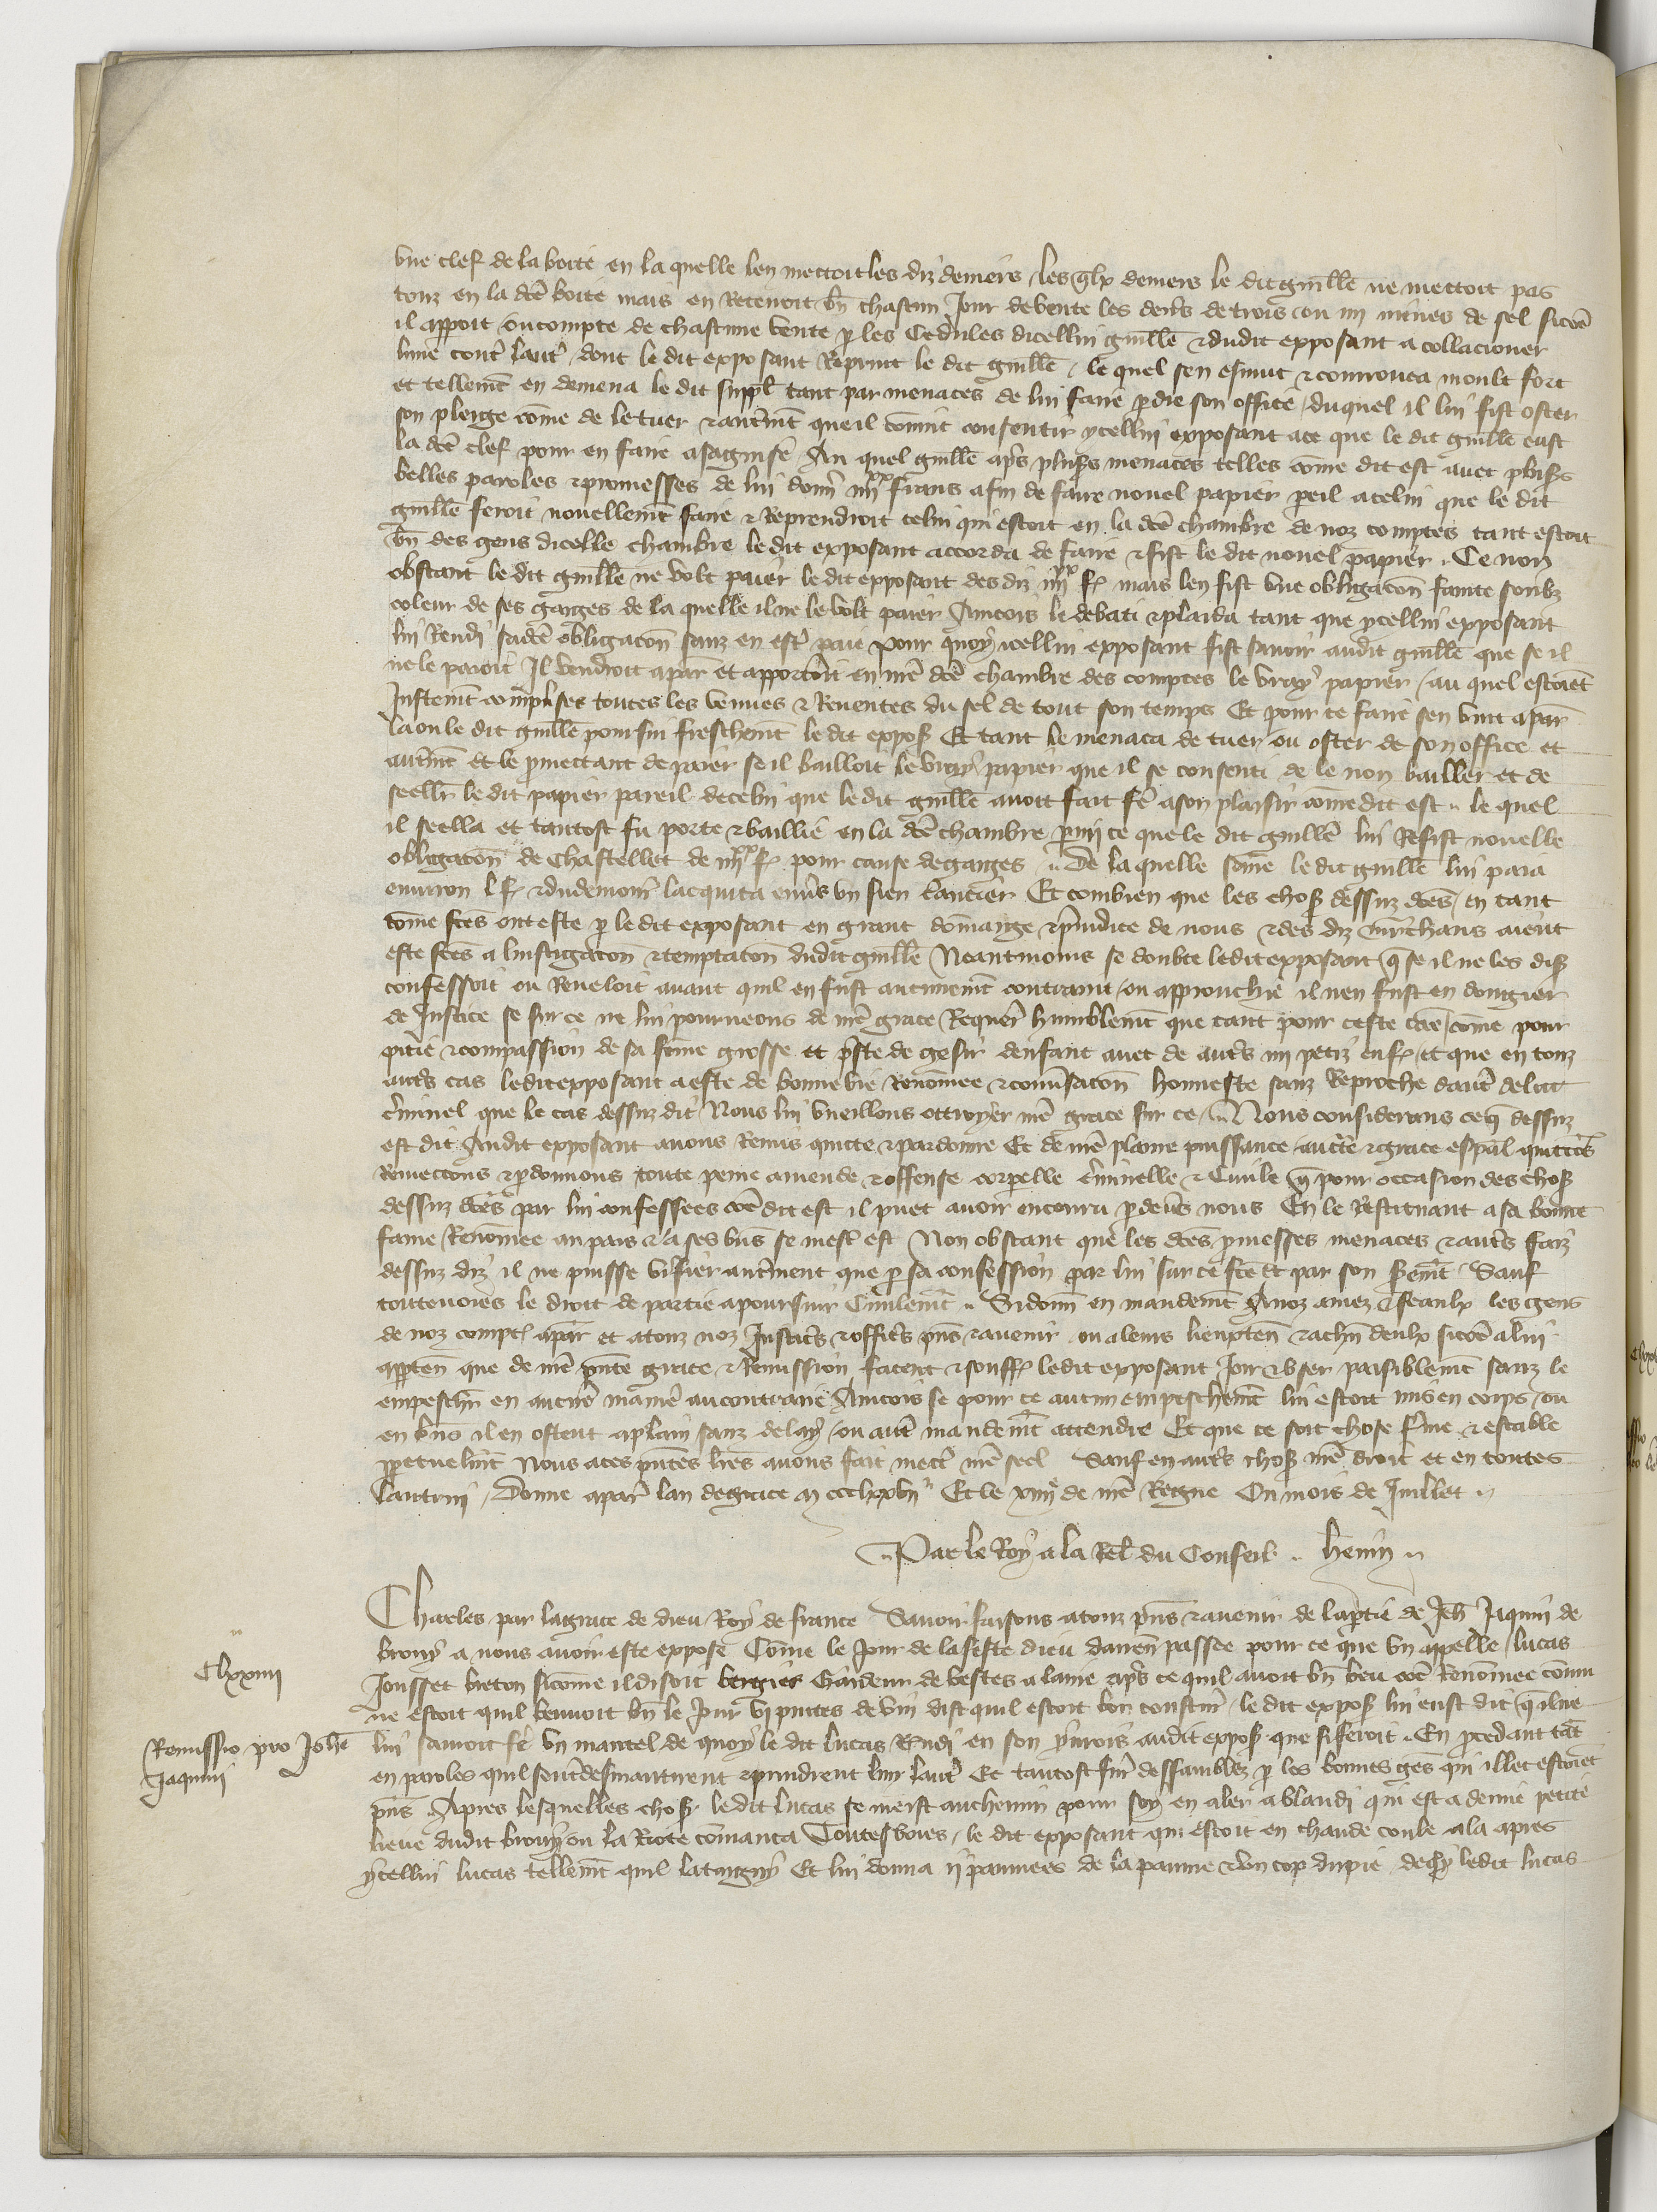 vne clef de la boite en la quelle len mettoit les diz deniers / les qlx deniers le dit guille ne mettoit pas
touz en la dce boite mais en retenoit bn chascun jour de vente les deners de trois ou iiij mines de sel sicoe
il appoit ou compte de chascune vente p les cedules dicellui guille & dudit exposant a collacioner
lune contr lautr / dont le dit exposant reprint le dit guille / le quel sen esmut & courrouca moult fort
et tellemt en demena le dit suppl tant par menaces de lui faire pdre son office / duquel il lui fist oster
son pleige come de le tuer & autrmt que il convint consentir ycellui exposant a ce que le dit guille eust
la dce clef pour en faire a sa guise Au quel guille aprs plusrs menaces telles come dit est avec plusrs
belles paroles & promesses de lui donr iiijxx frans afin de faire nouvel papier peil a celui que le dit
guille feroit nouvellemt faire & reprendroit celui qui estoit en la dce chambre de noz comptes tant estoit
bn des gens dicelle chambre le dit exposant accorda de faire & fist le dit nouvel papier . Ce non
obstant le dit guille ne volt paier le dit exposant des diz iiijxx f mais len fist vne obligacon fainte soubz
coleur de ses gaiges de la quelle il ne le volt paier Aincois le debati & plaida tant que ycellui exposant
lui rendi sadce obligacon sanz en estr paie Pour quoy icellui exposant fist savoir audit guille que se il
ne le paioit Il vendroit a par et apportroit en nre dce chambre des comptes le vray papier / au quel estoiet
justemt comprises toutes les venues & reventes du sel de tout son temps Et pour ce faire sen vint a par
la ou le dit guille poursui freschemt le dit expos Et tant le menaca de tuer ou oster de son office et
autrmt et le pmettant de paier se il bailloit le vray papier que il se consenti de le non bailler et de
seellr le dit papier pareil de celui que le dit guille avoit fait fe a son plaisir come dit est .. le quel
il seella et tantost fu porte & baillie en la dce chambre pmi ce que le dit guille lui refist nouvelle
obligacon de Chastellet de iiijxx f pour cause de gaiges .. De la quelle some le dit guille lui paia
environ l f & du demour lacquita envrs vn sien creancier Et combien que les chos dessuz dces / en tant
come fces ont este p le dit exposant en grant domaige & prejudice de nous & des diz mrchans aient
este fces a linstigacon & temptacon dudit guille Neantmoins se doubte ledit exposant q se il ne les dis
confessoit ou reveloit avant quil en fust autremt contraint / ou approuchie il nen fust en dongier
de justice se sur ce ne lui pourveons de nre grace / Requer humblemt que tant pour ceste cae / come pour
pitie & compassion de sa feme grosse et preste de gesir denfant avec de autrs iiij petiz enf / et que en touz
autrs cas ledit exposant a este de bonne vie renomee & convrsacon honneste sanz reproche dautre delit
criminel que le cas dessuz dit / Nous lui vueillons ottroyer nre grace sur ce / .. Nous considerans ce q dessuz
est dit Audit exposant avons remis quicte & pardonne Et de nre plaine puissance / aucte & grace espal quictos
remettons & pdonnons toute peine amende & offense corpelle criminelle & Civile q pour occasion des chos
dessuz dces par lui confessees coe dit est il puet avoir encouru pdevers nous En le restituant a sa bonne
fame / renomee au pais & a ses bns se mest est Non obstant que les dces pmesses menaces & autrs faiz
dessuz diz il ne puisse vrifier autrment que p sa confession par lui sur ce fce et par son sremt / Sauf
toutevoies le droit de partie a poursuir Civilemt .. Si donn en mandemt A noz amez & feaulx les gens
de noz compt a par et a touz noz justicrs & officrs pns & avenir ou a leurs lieuxten & a chn deulx sicoe a lui
apten que de nre pnte grace & remission facent & souff ledit exposant joir & vser paisiblemt sanz le
empeschr en aucune maniere au contraire Aincois se pour ce aucun empeschemt lui estoit mis en corps / ou
en bns il en ostent a plain sanz delay / ou autr mandemt attendre Et que ce soit chose ferme & estable
ppetuelmt Nous a ces pntes lres avons fait mectr nre seel Sauf en autrs chos nre droit et en toutes
lautrui / Donne a par lan de grace m ccclxxvij Et le xiiij de nre Regne Ou mois de juillet ..
.. Par le Roy a la rel du Conseil .. henry ..
Charles par la grace de dieu Roy de france Savoir faisons a touz pns & avenir de la ptie de Jeh Jaquin de
brouy a nous avoir este expose Come le jour de la feste dieu darren passee pour ce que vn appelle / lucas
Jousset breton sicome il disoit bergier Gardeur de bestes a laine aprs ce quil avoit bn beu coe renomee comu
ne estoit quil buvoit bn le jour vj pintes de vin dist quil estoit bon coustur / le dit expos lui eust dit q il ne
lui sauroit fe vn mantel de quoy le dit lucas rendi en son yvrois audit expos que si feroit . En pcedant tat
en paroles quil sentredesmantirent & prindrent lun lautr Et tantost fur dessamblez p les bonnes ges qui illec estoiet
pns . Apres lesquelles chos . le dit lucas se meist au chemin pour soy en aler a blandi qui est a demie petite
lieue dudit brouy ou la riote comanca Toutesvoies / le dit exposant qui estoit en chaude coule ala apres
ycellui lucas tellemt quil lataigny Et lui donna ij paumees de la paume & vn cop du pie de qy ledit lucas
Clxxiiij
Remissio pro Johe
Jaquini